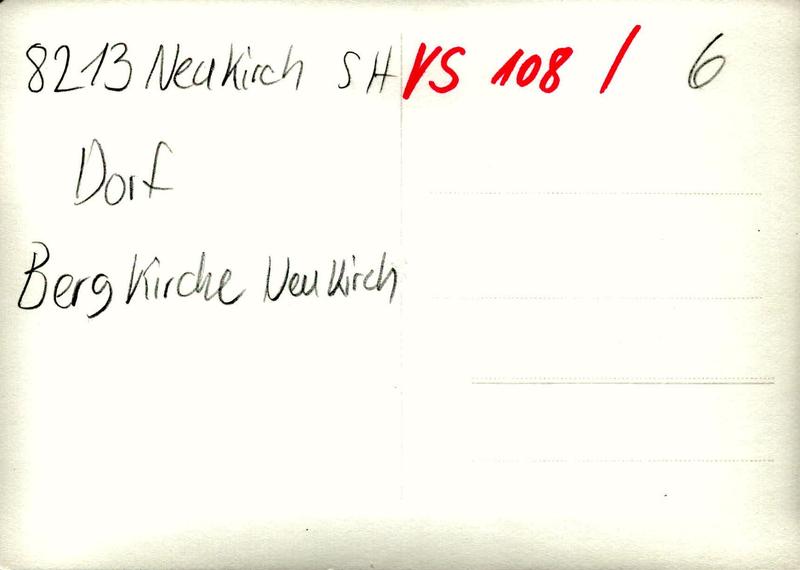 8213 Neukirch SH VS 108 / 6
Dorf
Bergkirche Neukirch